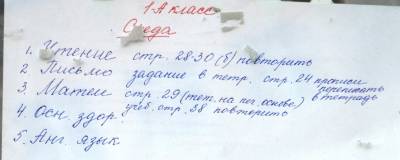 1-А класс
Среда
1. Чтение стр. 28-30 (б) повторить
2 Письмо задание в тетр. стр. 24 прописи переписать в тетрадь
3. Матем стр. 29 (тет. на печ. основе)
4. Осн. здор учеб. стр. 38 повторить
5. Анг. язык